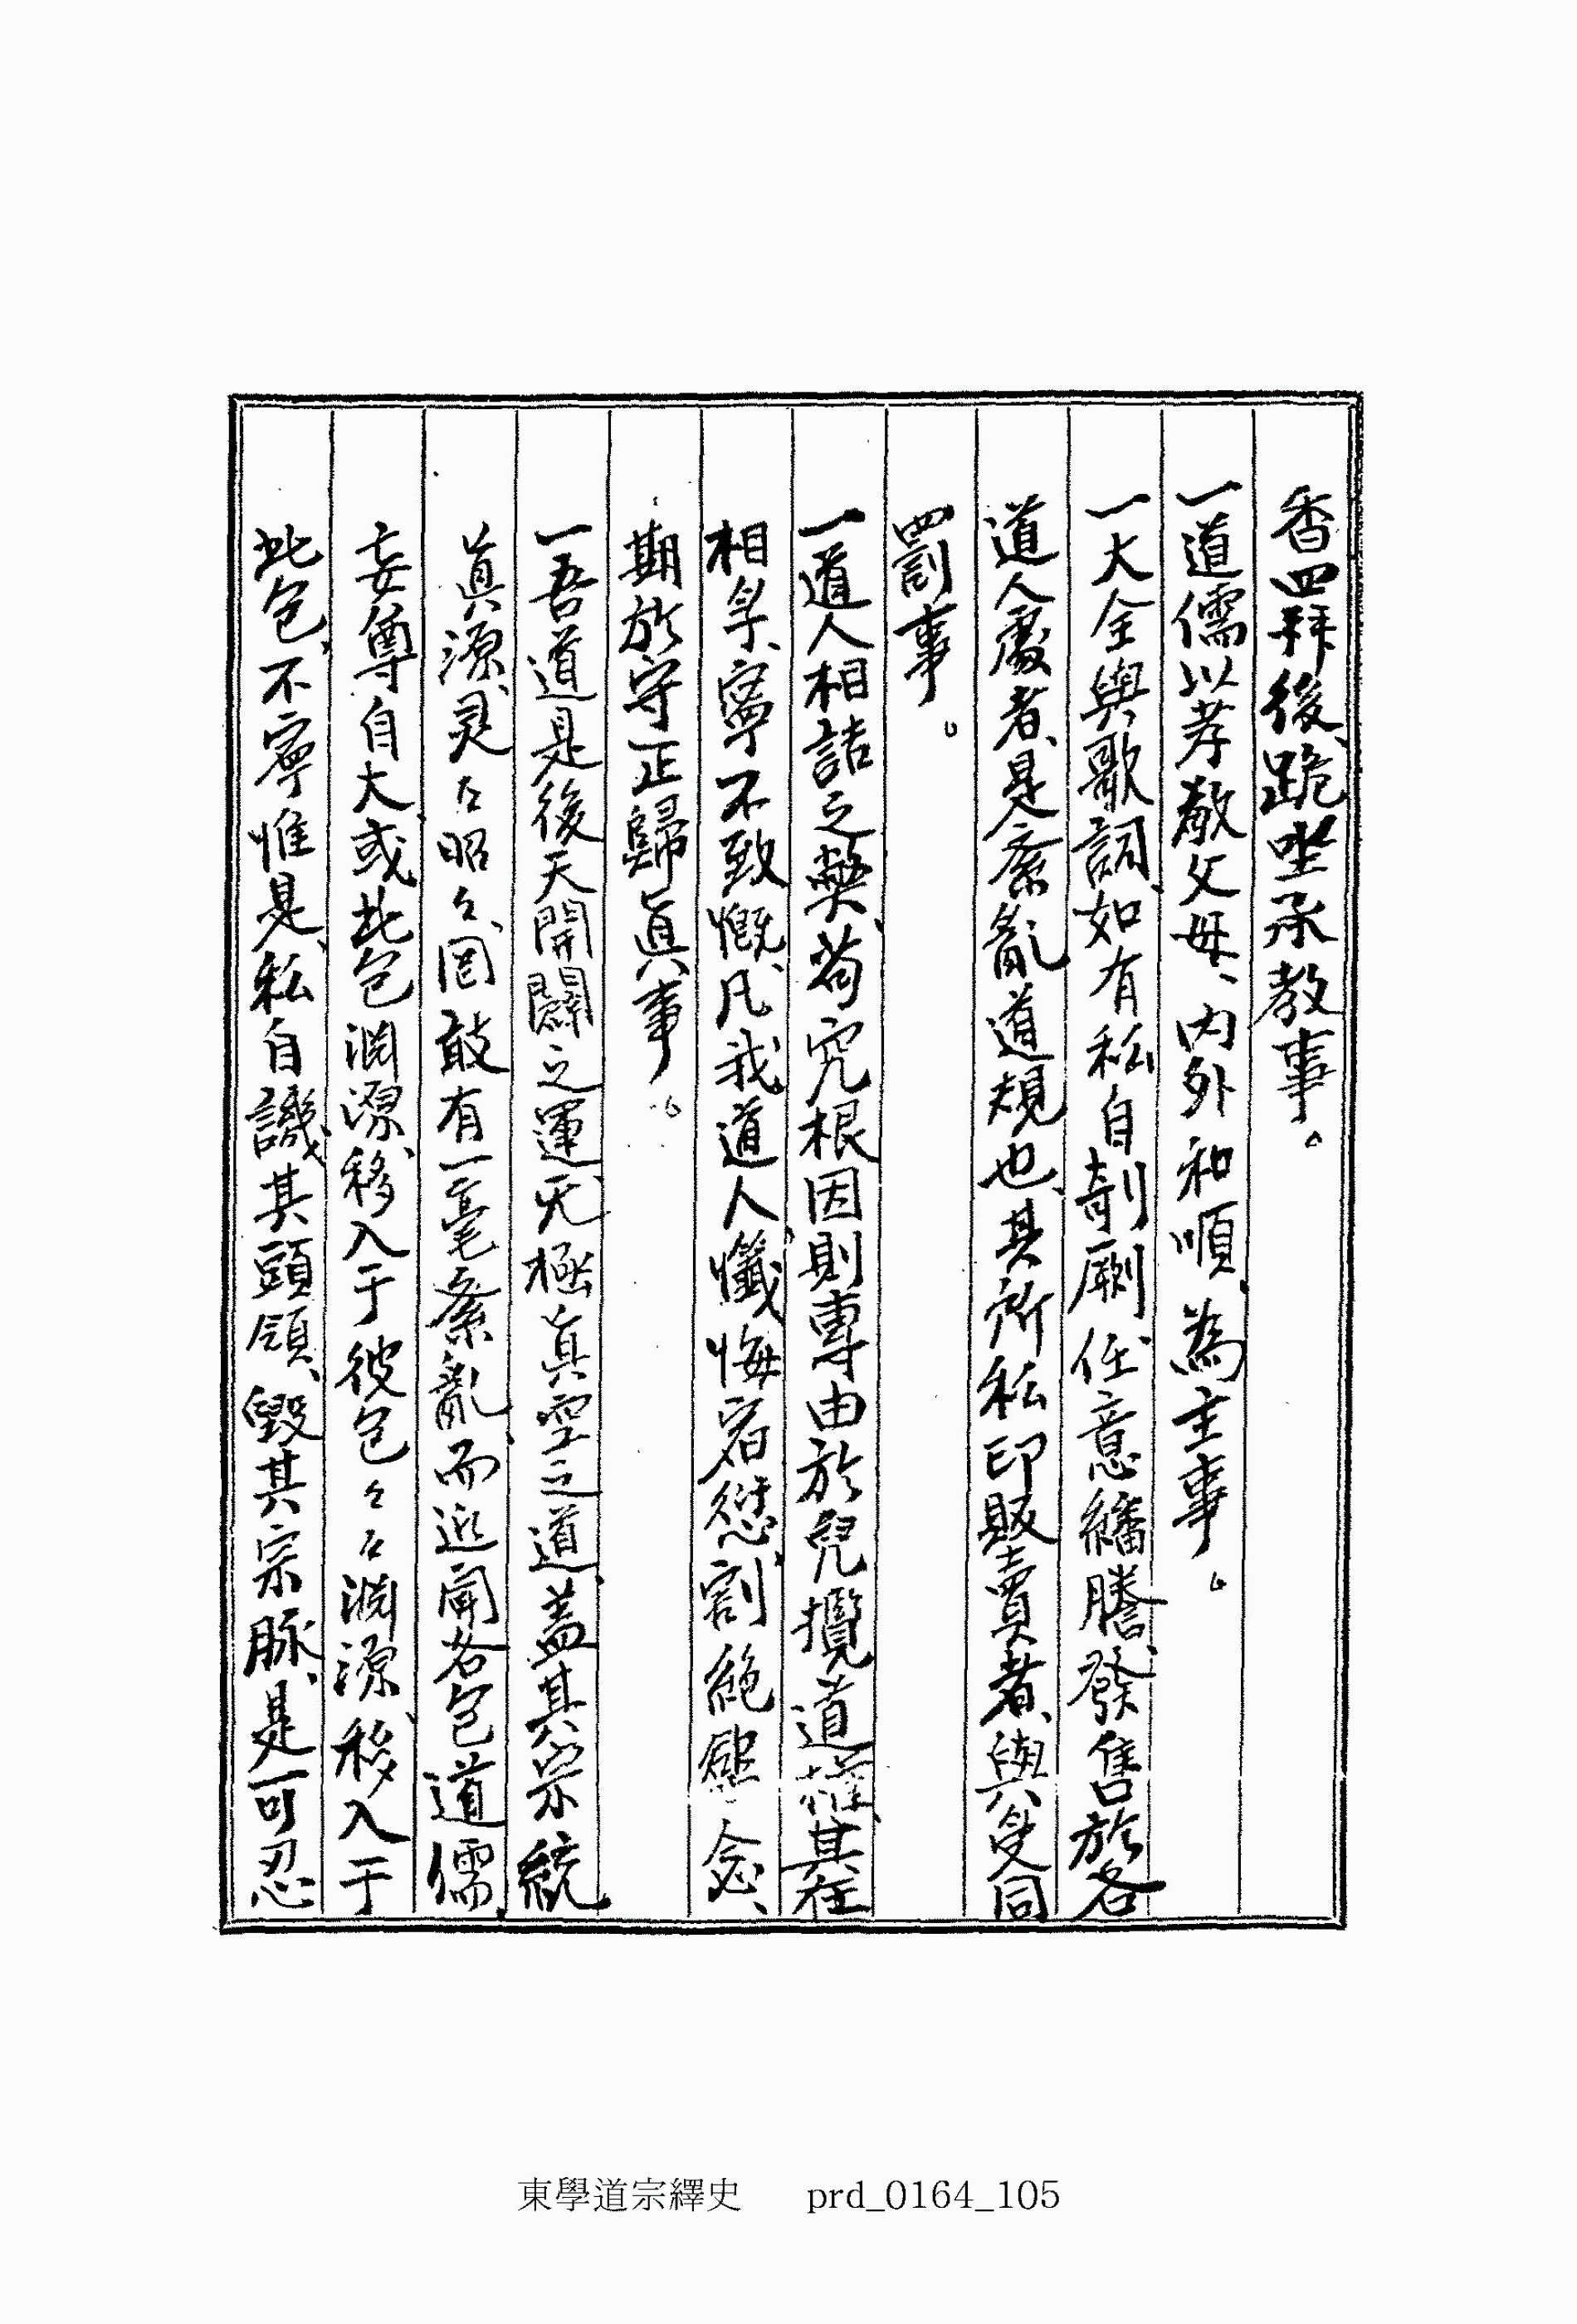 香四拜後、跪坐承敎事。
一道儒以孝敬父母、內外和順、為主事。
一大全與歌詞、如有私自剞劂、任意繙謄、發售於各
道人處者、是紊亂道規也、其所私印販賣者、與受同
罰事。
一道人相詰之弊、苟究根因則專由於兒攬道權、其在
相孚、寧不致慨、凡我道人、懺悔宿愆、割絶慾念、
期於守正歸眞事。
一吾道是後天開闢之運、无極眞空之道、盖其宗統
眞源、灵々昭々、罔敢有一毫紊亂、而近聞各包道儒、
妄尊自大、或此包淵源、移入于彼包、々々淵源、移入于
此包、不寧惟是、私自譏其頭領、毀其宗脉、是可忍
東學道宗繹史 prd_0164_105